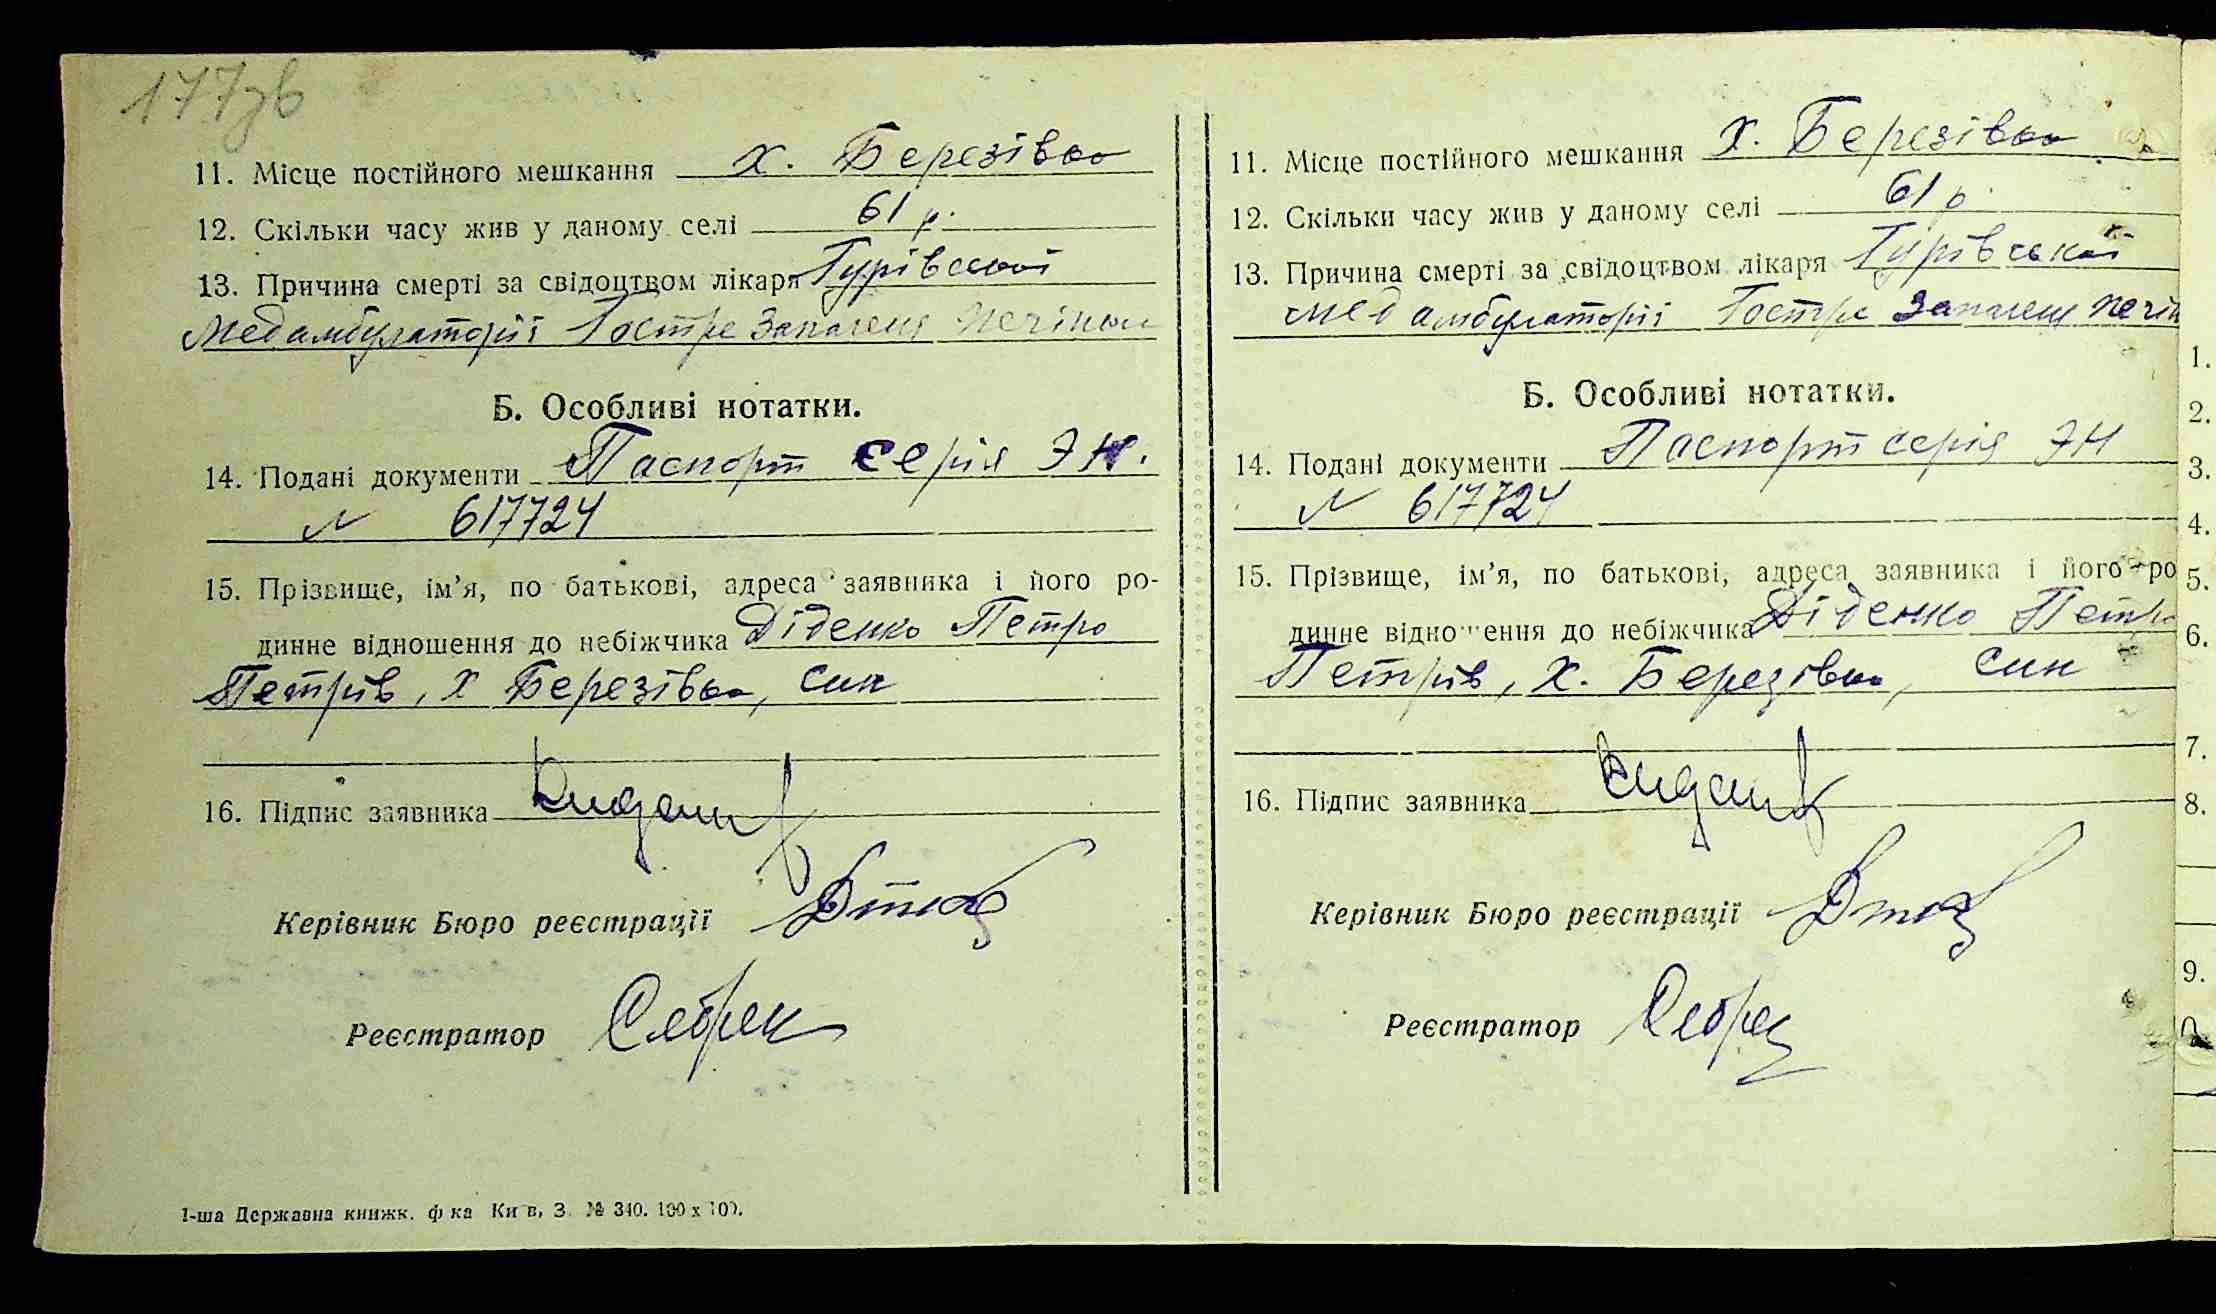 177зв
11. Місце постійного мешкання х. Березівка
12. Скільки часу жив у даному селі 61 р.
13. Причина смерті за свідоцтвом лікаря Гурівської
медамбулаторії Гостре запаленя печінки
Б. Особливі нотатки.
14. Подані документи Паспорт серія ЭН.
N 617724
15. Прізвище, ім’я, по батькові, адреса заявника і його ро-
динне відношення до небіжчика Діденко Петро
Петрів, х Березівка, син
16. Підпис заявника
Керівник Бюро реєстрації
Реєстратор
1-ша Державна книжк. ф ка Київ, З. № 340. 100 х 100.
11. Місце постійного мешкання х. Березівка
12. Скільки часу жив у даному селі 61 р.
13. Причина смерті за свідоцтвом лікаря Гурівської
медамбулаторії Гостре запаленя печін
Б. Особливі нотатки.
14. Подані документи Паспорт серія ЭН
N 617724
15. Прізвище, ім’я, по батькові, адреса заявника і його ро
динне відношення до небіжчика Діденко Петро
Петрів, х. Березівка, син
16. Підпис заявника
Керівник Бюро реєстрації
Реєстратор
1.
2.
3.
4.
5.
6.
7.
8.
9.